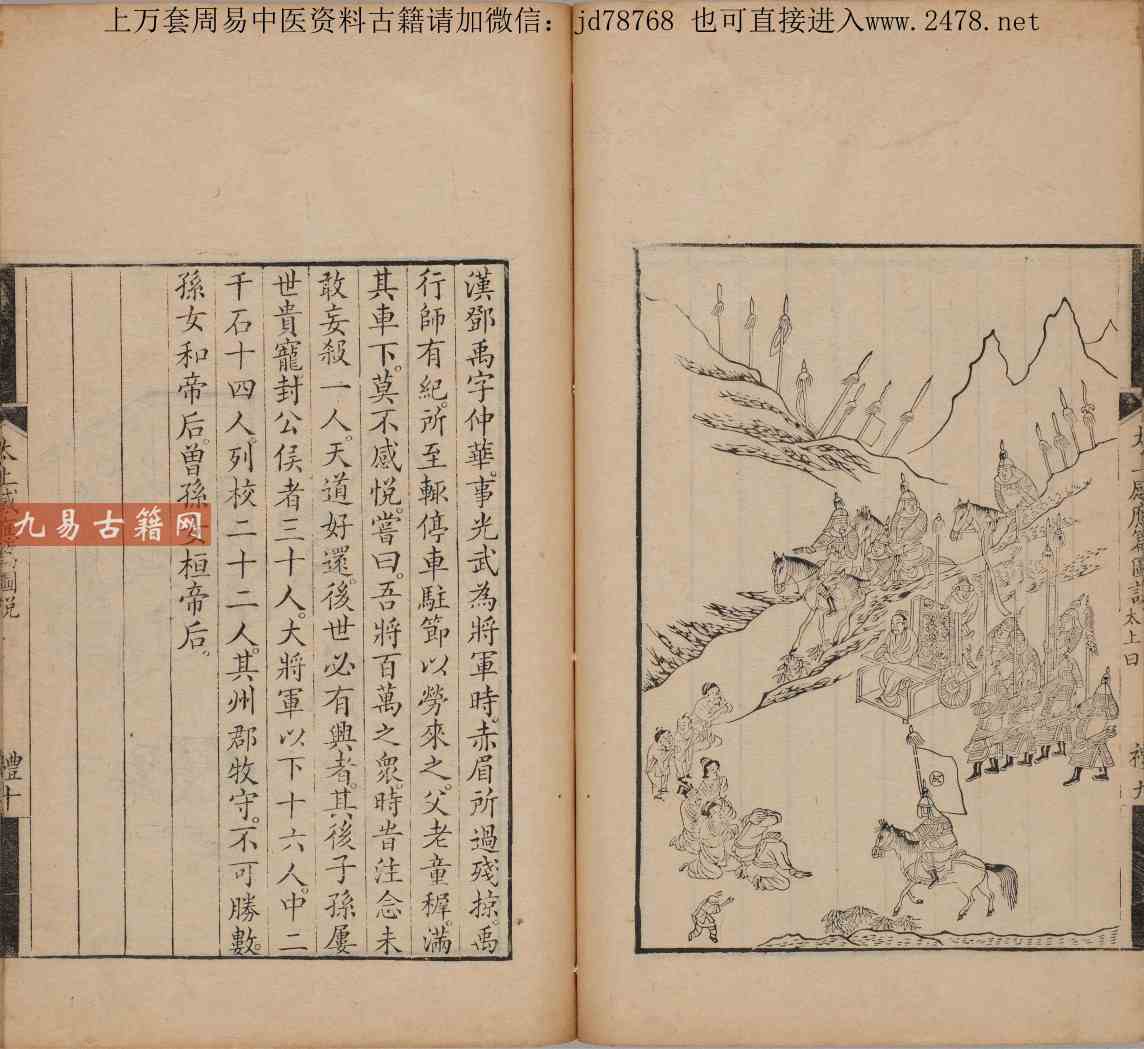 上万套周易中医资料古籍请加微信：jd78768 也可直接进入www.2478.net
太上曰
漢鄧禹字仲華。事光武為將軍時。赤眉所過殘掠。禹
行師有紀。所至輒停車駐節以勞來之。父老童穉。滿
其車下。莫不感悅。嘗曰。吾將百萬之衆。時時注念未
敢妄殺一人。天道好還。後世必有興者。其後子孫屢
世貴寵封公侯者三十人。大將軍以下十六人。中二
千石十四人。列校二十二人。其州郡牧守。不可勝數。
孫女和帝后。曾孫女桓帝后。
禮十
九易古籍网